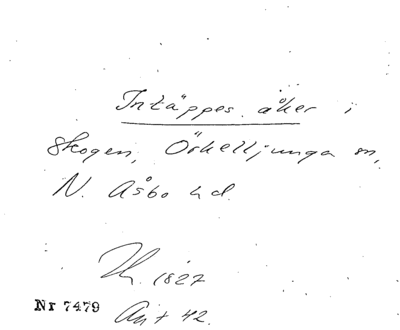 Intäppes åker i
skogen, Örkelljunga sn,
N. Åsbo hd.
1827
Nr 7479
42.